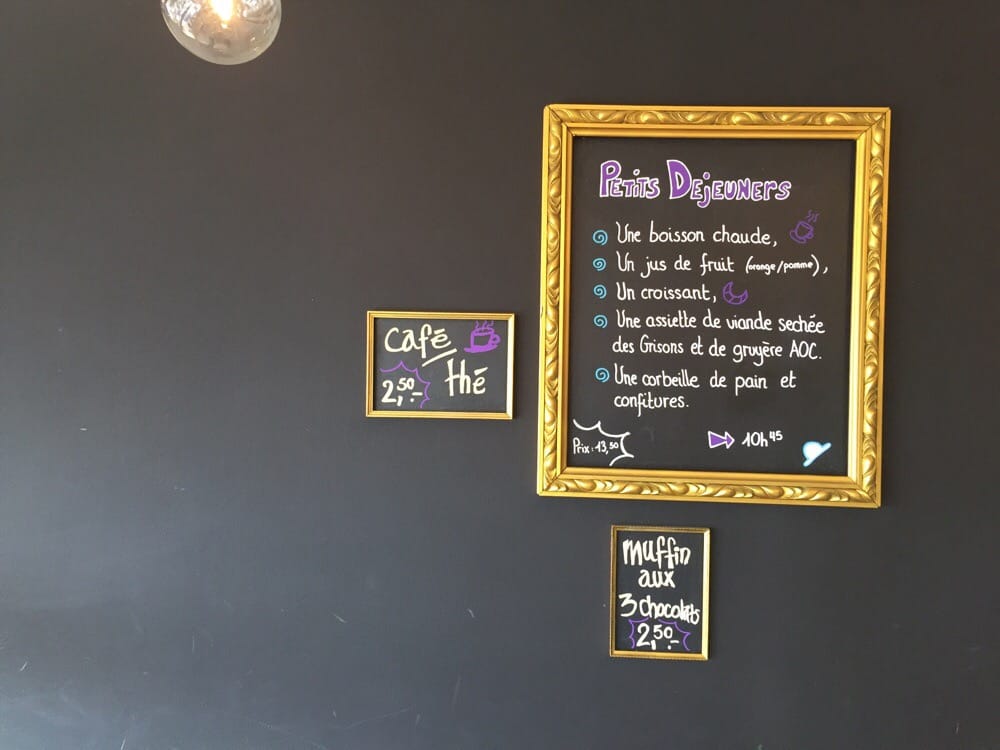 Petits Dejeuners
Une boisson chaude,
Un jus de fruit (orange/pomme),
Un croissant,
Une assiette de viande sechée
des Grisons et de gruyère AOC.
Une corbeille de pain et
confitures.
Prix: 13,50
10h45
café
thé
2,50.-
muffin
aux
3 chocolats
2,50.-